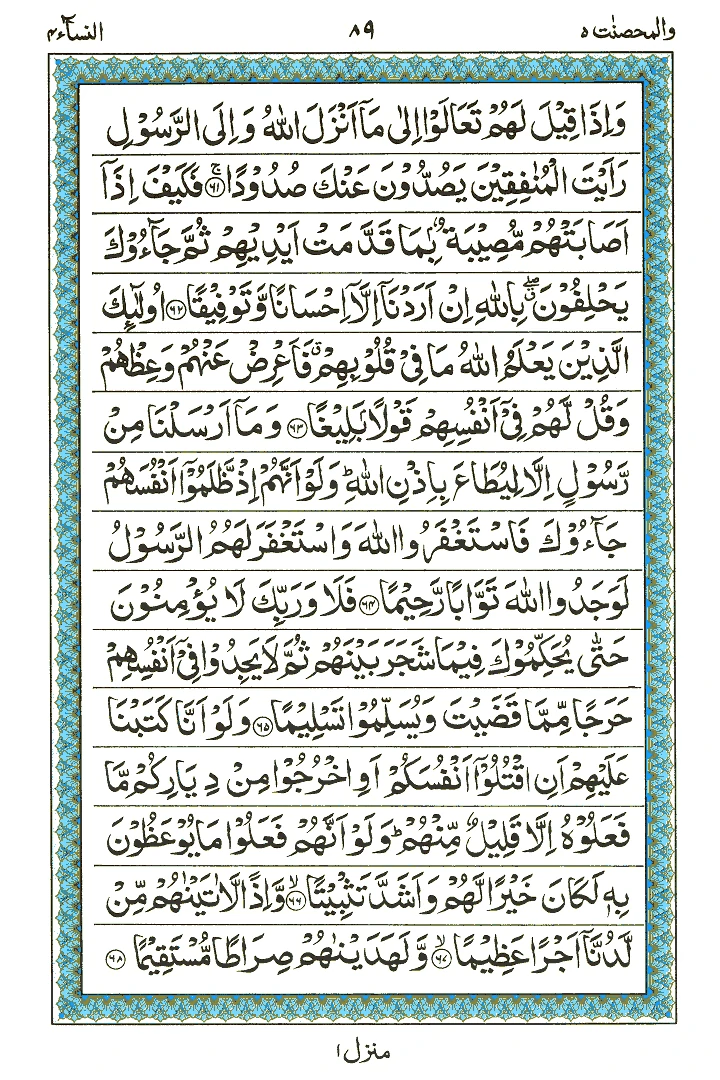 والمحصنٰت ۵ ۸۹ النسآء ۴
وَاِذَا قِيْلَ لَهُمْ تَعَالَوْا اِلٰى مَاۤ اَنْزَلَ اللّٰهُ وَاِلَى الرَّسُوْلِ
رَاَيْتَ الْمُنٰفِقِيْنَ يَصُدُّوْنَ عَنْكَ صُدُوْدًا ۚ‏﴿۶۱﴾ فَكَيْفَ اِذَاۤ
اَصَابَتْهُمْ مُّصِيْبَةٌۢ بِمَا قَدَّمَتْ اَيْدِيْهِمْ ثُمَّ جَآءُوْكَ
يَحْلِفُوْنَ ۖۗ بِاللّٰهِ اِنْ اَرَدْنَاۤ اِلَّاۤ اِحْسَانًا وَّتَوْفِيْقًا ﴿۶۲﴾ اُولٰٓئِكَ
الَّذِيْنَ يَعْلَمُ اللّٰهُ مَا فِيْ قُلُوْبِهِمْ ۗ فَاَعْرِضْ عَنْهُمْ وَعِظْهُمْ
وَقُلْ لَّهُمْ فِيْۤ اَنْفُسِهِمْ قَوْلًاۢ بَلِيْغًا ﴿۶۳﴾ وَمَاۤ اَرْسَلْنَا مِنْ
رَّسُوْلٍ اِلَّا لِيُطَاعَ بِاِذْنِ اللّٰهِ ؕ وَلَوْ اَنَّهُمْ اِذْ ظَّلَمُوْۤا اَنْفُسَهُمْ
جَآءُوْكَ فَاسْتَغْفَرُوا اللّٰهَ وَاسْتَغْفَرَ لَهُمُ الرَّسُوْلُ
لَوَجَدُوا اللّٰهَ تَوَّابًا رَّحِيْمًا ﴿۶۴﴾ فَلَا وَرَبِّكَ لَا يُؤْمِنُوْنَ
حَتّٰى يُحَكِّمُوْكَ فِيْمَا شَجَرَ بَيْنَهُمْ ثُمَّ لَا يَجِدُوْا فِيْۤ اَنْفُسِهِمْ
حَرَجًا مِّمَّا قَضَيْتَ وَيُسَلِّمُوْا تَسْلِيْمًا ﴿۶۵﴾ وَلَوْ اَنَّا كَتَبْنَا
عَلَيْهِمْ اَنِ اقْتُلُوْۤا اَنْفُسَكُمْ اَوِ اخْرُجُوْا مِنْ دِيَارِكُمْ مَّا
فَعَلُوْهُ اِلَّا قَلِيْلٌ مِّنْهُمْ ؕ وَلَوْ اَنَّهُمْ فَعَلُوْا مَا يُوْعَظُوْنَ
بِهٖ لَكَانَ خَيْرًا لَّهُمْ وَاَشَدَّ تَثْبِيْتًا ۙ﴿۶۶﴾ وَّاِذًا لَّاٰتَيْنٰهُمْ مِّنْ
لَّدُنَّاۤ اَجْرًا عَظِيْمًا ۙ﴿۶۷﴾ وَّلَهَدَيْنٰهُمْ صِرَاطًا مُّسْتَقِيْمًا ﴿۶۸﴾
منزل ۱